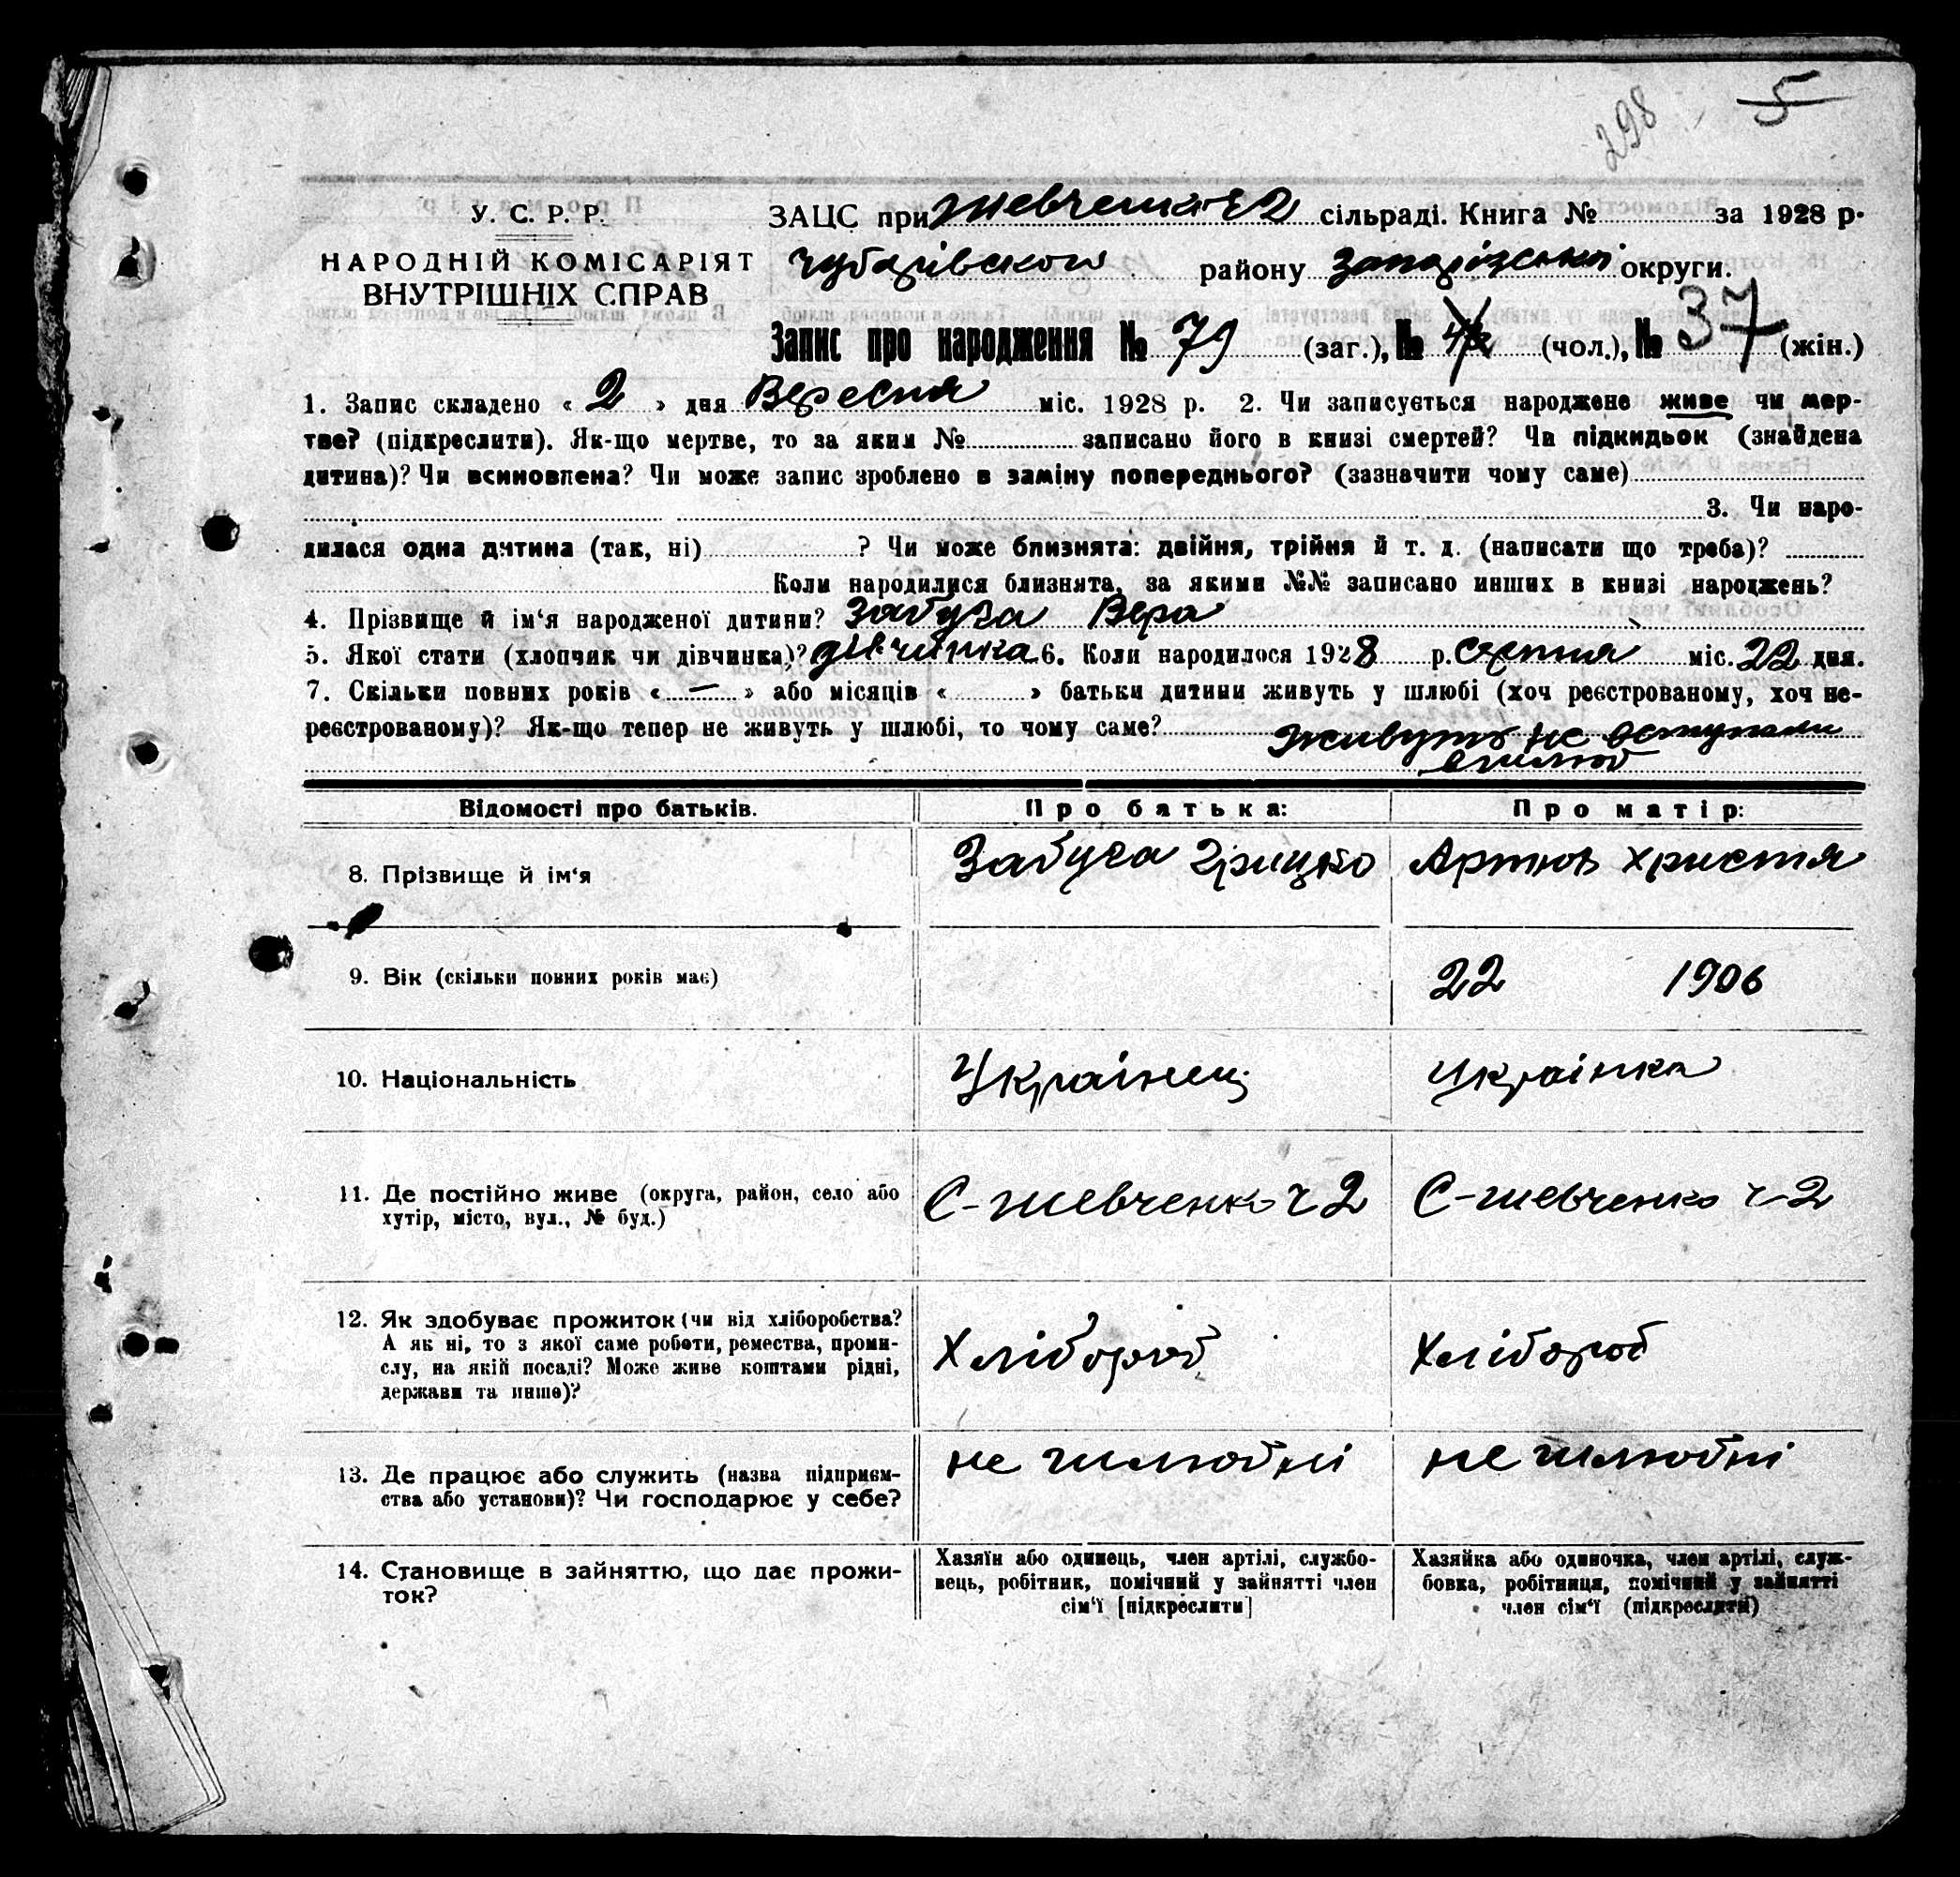 298 5
У. С. Р. Р.
НАРОДНІЙ КОМІСАРІЯТ
ВНУТРІШНІХ СПРАВ
ЗАЦС при Шевченко ч 2 сільраді. Книга № за 1928 р.
Чубарівського району Запорізької округи.
Запис про народження № 79 (заг.), № (чол.), № 37 (жін.)
1. Запис складено « 2 » дня Вересня міс. 1928 р. 2. Чи записується народжене живе чи мер-
тве? (підкреслити). Як-що мертве, то за яким № записано його в книзі смертей? Чи підкидьок (знайдена
дитина)? Чи всиновлена? Чи може запис зроблено в заміну попереднього? (зазначити чому саме)
3. Чи наро-
дилася одна дитина (так, ні) ? Чи може близнята: двійня, трійня й т. д. (написати що треба)?
Коли народилися близнята, за якими №№ записано инших в книзі народжень?
4. Прізвище й ім‘я народженої дитини? Забуга Вера
5. Якої стати (хлопчик чи дівчинка)? дівчинка 6. Коли народилося 1928 р. Серпня міс. 22 дня.
7. Скільки повних років « — » або місяців « » батьки дитини живуть у шлюбі (хоч реєстрованому, хоч не-
реєстрованому)? Як-що тепер не живуть у шлюбі, то чому саме? Живуть не вступали
в шлюб
Відомості про батьків. Про батька: Про матір:
8. Прізвище й ім‘я Забуга Грицько Артюх Христя
9. Вік (скільки повних років має) 22 1906
10. Національність Українец Українка
11. Де постійно живе (округа, район, село або
хутір, місто, вул., № буд.)
С-Шевченко ч 2 С-Шевченко ч-2
12. Як здобуває прожиток (чи від хліборобства?
А як ні, то з якої саме роботи, ремества, проми-
слу, на якій посаді? Може живе коштами рідні,
держави та инше)?
Хлібороб Хлібороб
13. Де працює або служить (назва підприєм-
ства або установи)? Чи господарює у себе?
не шлюбні не шлюбні
14. Становище в зайняттю, що дає прожи-
ток?
Хазяїн або одинець, член артілі, службо-
вець, робітник, помічний у зайнятті член
сім‘ї [підкреслити]
Хазяйка або одиночка, член артілі, служ-
бовка, робітниця, помічний у зайнятті
член сім‘ї (підкреслити)